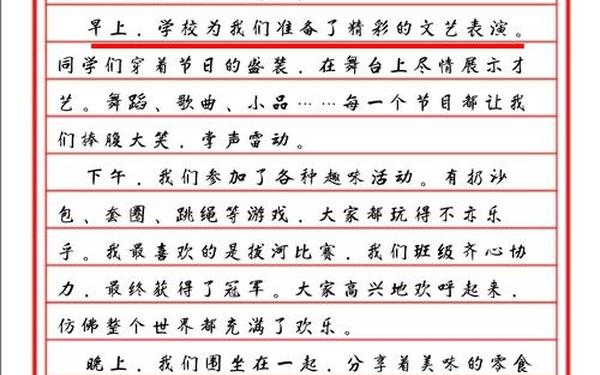 早上，学校为我们准备了精彩的文艺表演。
同学们穿着节日的盛装，在舞台上尽情展示才
艺。舞蹈、歌曲、小品……每一个节目都让我
们捧腹大笑，掌声雷动。
下午，我们参加了各种趣味活动。有扔沙
包、套圈、跳绳等游戏，大家都玩得不亦乐
乎。我最喜欢的是拔河比赛，我们班级齐心协
力，最终获得了冠军。大家高兴地欢呼起来，
仿佛整个世界都充满了欢乐。
晚上，我们围坐在一起，分享着美味的零食